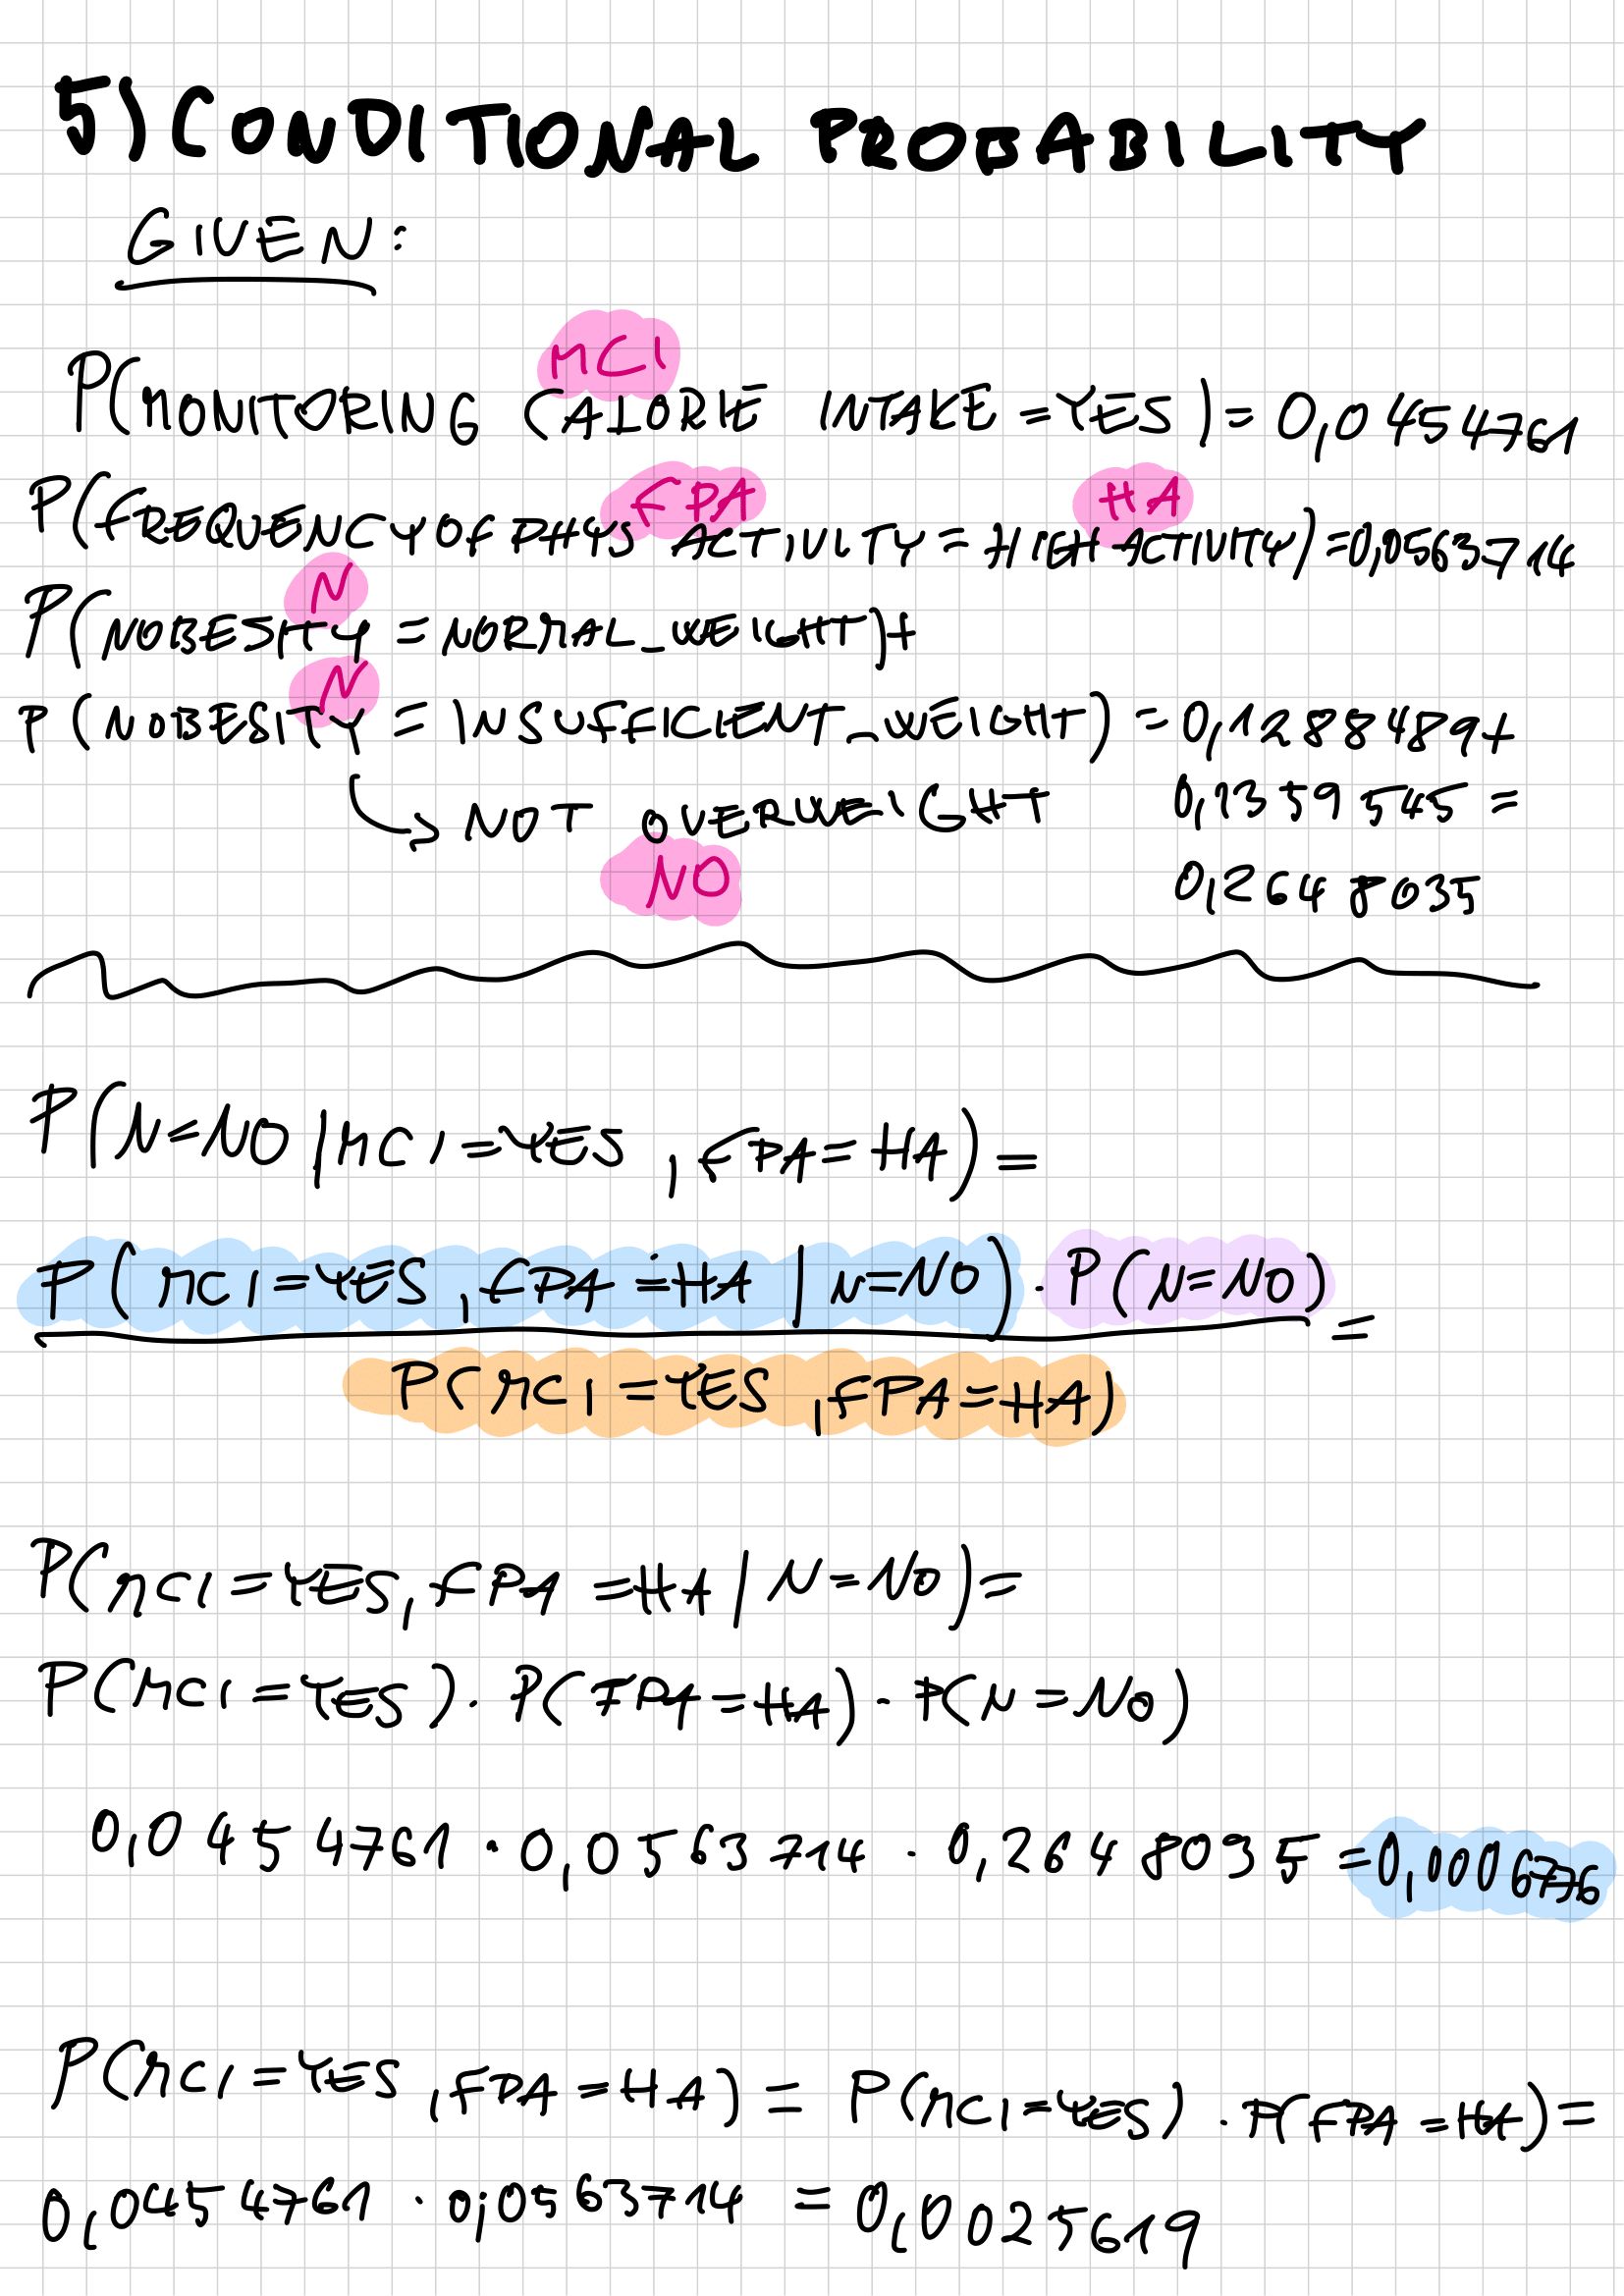 5) CONDITIONAL PROBABILITY
GIVEN:
MCI
P(MONITORING CALORIE INTAKE = YES) = 0,0454761
FPA HA
P(FREQUENCY OF PHYS ACTIVITY = HIGH ACTIVITY) = 0,0563714
N
P(NOBESITY = NORMAL_WEIGHT) +
N
P(NOBESITY = INSUFFICIENT_WEIGHT) = 0,1288489 +
↳ NOT OVERWEIGHT 0,1359545 =
NO 0,2648035
P(N=NO | MCI=YES, FPA=HA) =
P(MCI=YES, FPA=HA | N=NO) · P(N=NO) =
P(MCI=YES, FPA=HA)
P(MCI=YES, FPA=HA | N=NO) =
P(MCI=YES) · P(FPA=HA) · P(N=NO)
0,0454761 · 0,0563714 · 0,2648035 = 0,0006776
P(MCI=YES, FPA=HA) = P(MCI=YES) · P(FPA=HA) =
0,0454761 · 0,0563714 = 0,0025619